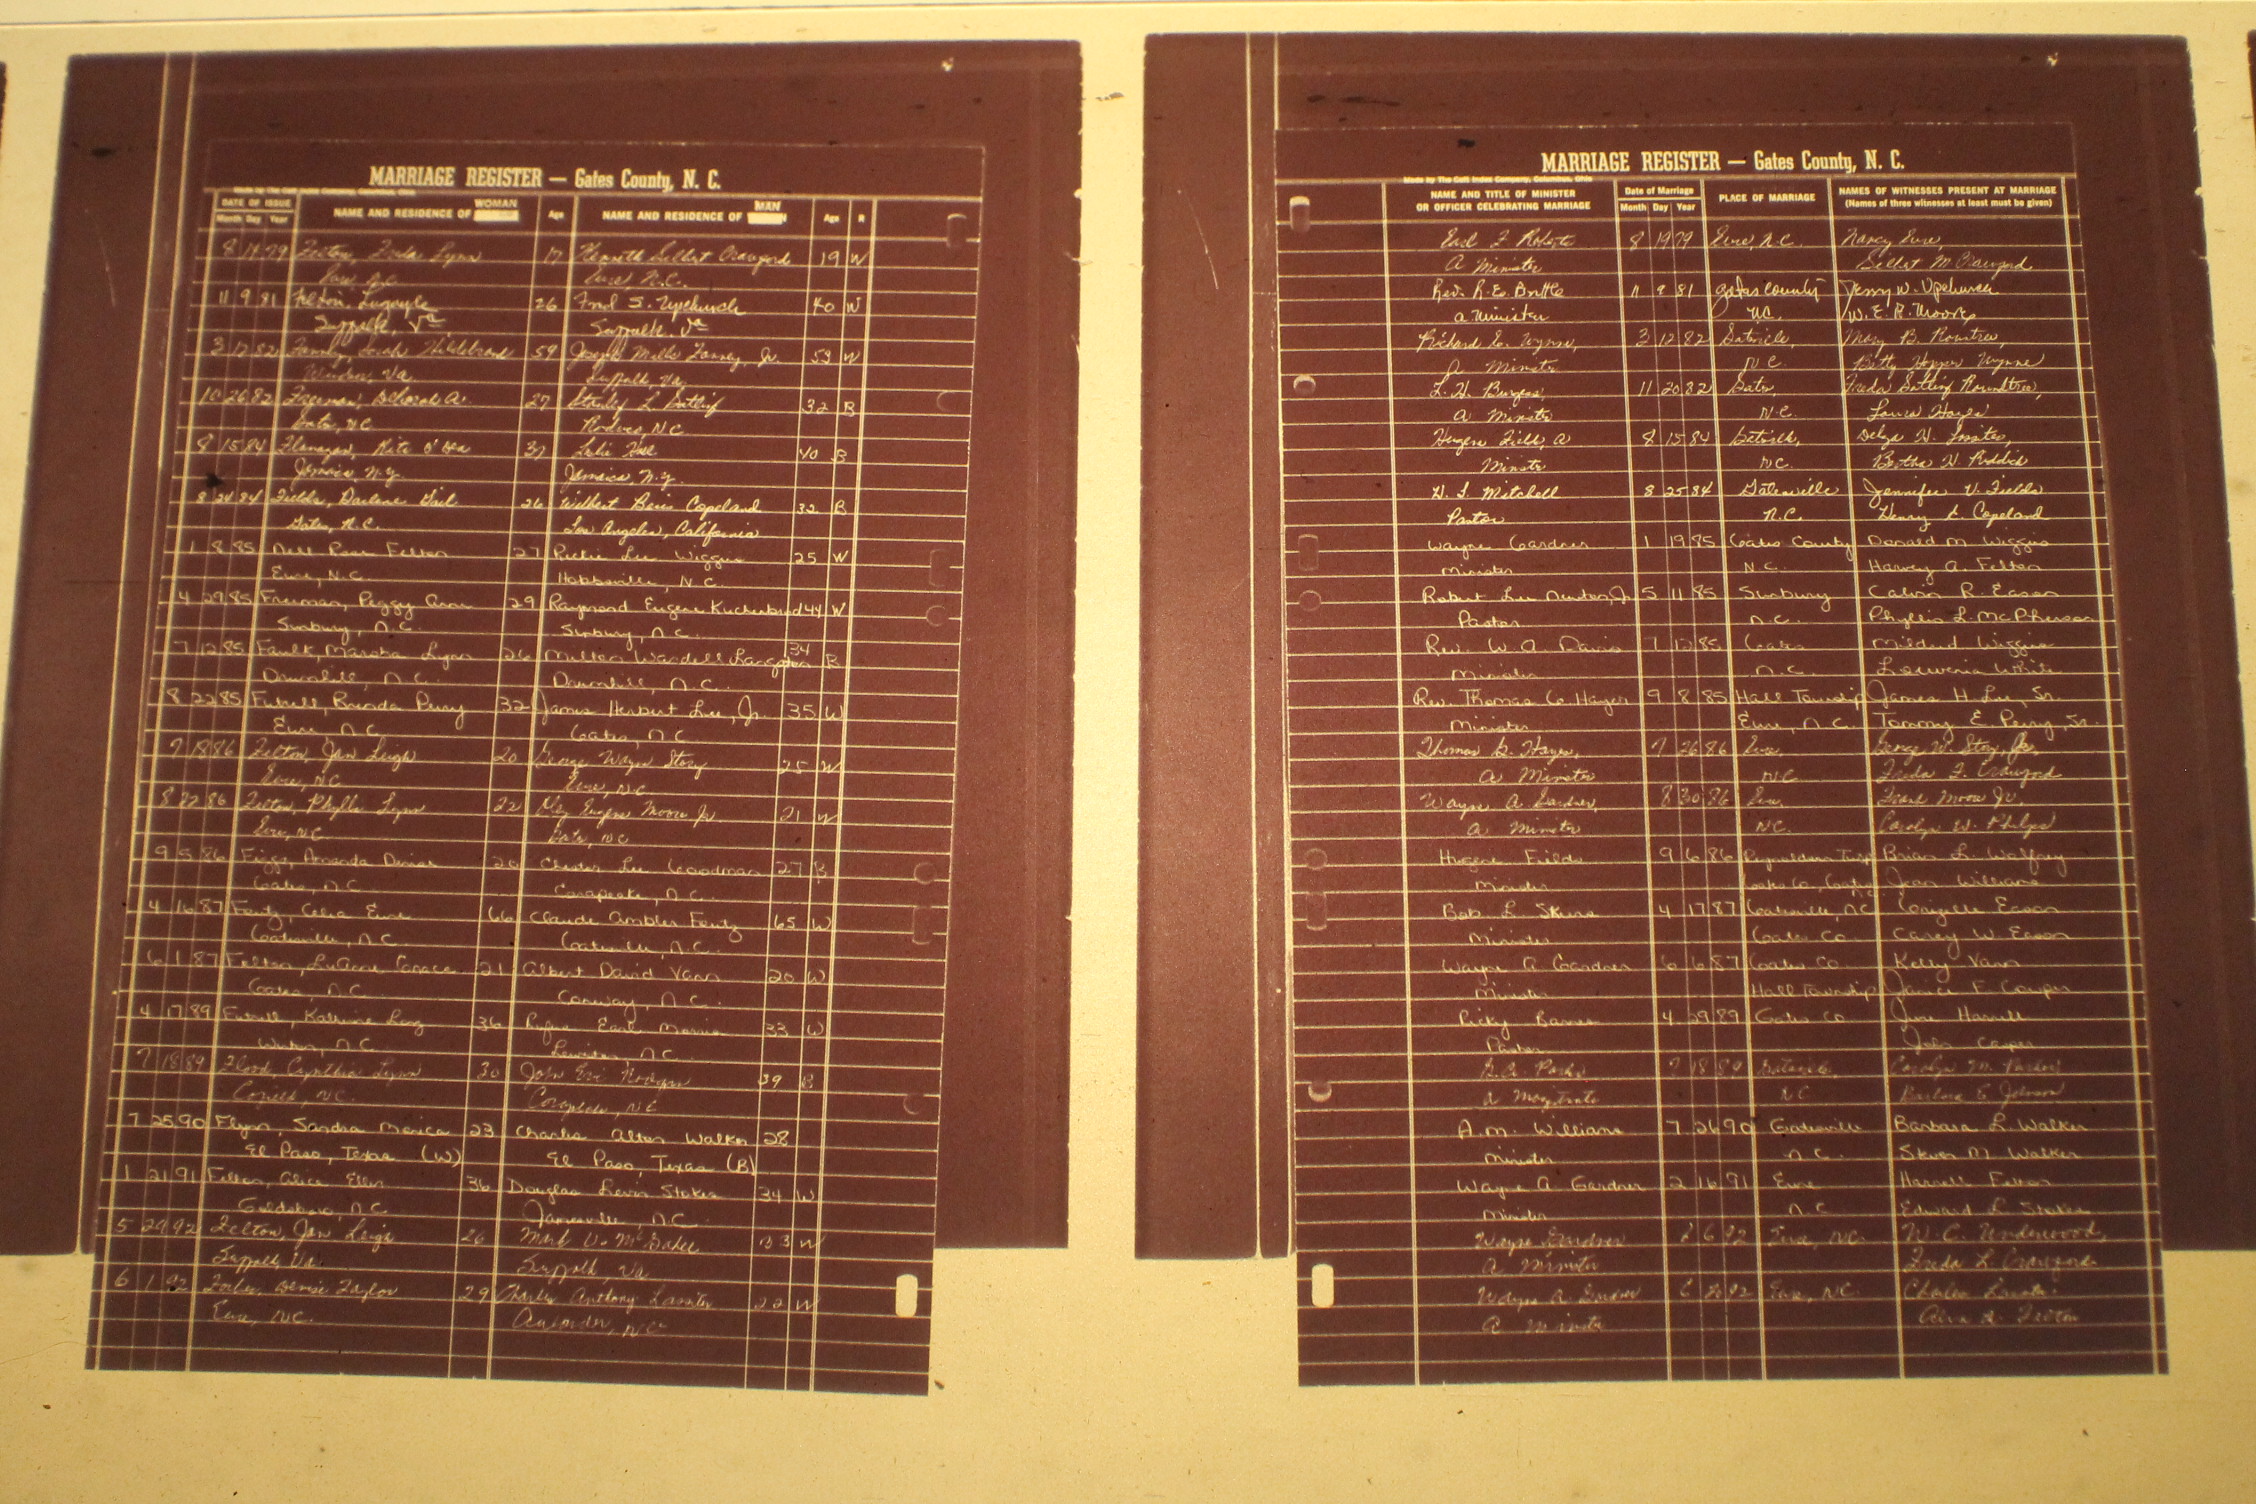 MARRIAGE REGISTER — Gates County, N. C.
DATE OF ISSUE
Month Day Year
NAME AND RESIDENCE OF WOMAN
Age
NAME AND RESIDENCE OF MAN
Age
R
Felton, Freda Lynn 17 Kenneth Selbert Crawford 19 W
Eure N.C. Eure N.C.
11 9 81 Felton, 26 Fred S. Upchurch 40 W
Suffolk, Va Suffolk, Va
3 12 82 59 Joseph Mills Jr. 53 W
Windsor, Va Suffolk, Va.
10 26 82 Freeman, Deborah A. 27 Stanley L. 32 B
Gates, NC NC
8 15 84 Flanagan, Rita O'Dea 37 Leslie 40 B
Jamaica N.Y. Jamaica, N.Y.
8 24 84 Fields, Darlene Gail 26 Wilbert Copeland 32 B
Gates, N.C. Los Angeles, California
1 8 85 Felton 27 Rickie Lee Wiggins 25 W
Eure, N.C. Hobbsville, N.C.
4 29 85 Freeman, Peggy Ann 29 Raymond Eugene 44 W
Sunbury, N.C. Sunbury, N.C.
7 12 85 Faulk, Marsha Lynn 26 Milton Wardell Langston 34 B
N.C. N.C.
8 22 85 Futrell, Brenda Perry 32 James Herbert Lee, Jr. 35 W
Eure N.C. Gates, N.C.
7 18 86 Felton, Jan Leigh 20 George Wayne Story 25 W
Eure, NC Eure, NC
8 22 86 Felton, Phyllis Lynn 22 Eugene Moore Jr 21 W
Eure, NC Gates, NC
9 5 86 Figgs, Amanda Denise 20 Chester Lee Goodman 27 B
Gates, N.C. Corapeake, N.C.
4 16 87 Fentz, Celia Eure 66 Claude Ambler Fentz 65 W
Gatesville, N.C. Gatesville, N.C.
6 1 87 Felton, LuAnne Carace 21 Albert David Vann 20 W
Gates, N.C. Conway, N.C.
4 17 89 Futrell, Katherine 36 Rufus Earl Morris 33 W
N.C. Lewiston, N.C.
7 18 89 Flood, Cynthia Lynn 30 John Eric 39 B
Cofield, N.C. Corapeake, NC
7 25 90 Flynn, Sandra Monica 23 Charles Alton Walker 28
El Paso, Texas (W) El Paso, Texas (B)
1 21 91 Felton, Alice Ellen 36 Douglas Levin Stokes 34 W
Goldsboro, N.C. Jamesville, N.C.
5 29 92 Felton, Jan Leigh 26 Mark 33 W
Suffolk, Va. Suffolk, Va
6 1 92 Denise Taylor 29 Charles Anthony Lassiter 22 W
Eure, NC. Aulander, NC
MARRIAGE REGISTER — Gates County, N. C.
Made by The Cott Index Company, Columbus, Ohio
NAME AND TITLE OF MINISTER
OR OFFICER CELEBRATING MARRIAGE
Date of Marriage
Month Day Year
PLACE OF MARRIAGE
NAMES OF WITNESSES PRESENT AT MARRIAGE
(Names of three witnesses at least must be given)
Earl F. Roberts 8 19 79 Eure, N.C. Nancy Eure,
A Minister Selbert M Crawford
Rev. R. E. Brittle 11 9 81 Gates County Jerry W. Upchurch
a Minister N.C. W. E. R. Moore
Richard E. Wynne, 3 12 82 Gatesville, Mary B. Rountree,
A Minister N.C. Betty Hopper Wynne
L. H. Burgess, 11 20 82 Gates, Freda Rountree,
A Minister N.C. Laura Hayes
Hugene Fields, A 8 15 84 Gatesville,
Minister NC. Bertha H. Riddick
H. L. Mitchell 8 25 84 Gatesville Jennifer V. Fields
Pastor N.C. Henry L. Copeland
Wayne Gardner 1 19 85 Gates County Donald M. Wiggins
Minister N.C. Harvey A. Felton
Robert Lee Newton, Jr 5 11 85 Sunbury Calvin R. Eason
Pastor N.C. Phyllis L. McPherson
Rev. W. A. Davis 7 12 85 Gates Mildred Wiggins
Minister N.C. Louvenia White
Rev. Thomas G. Hayes 9 8 85 Hall Township James H. Lee, Sr.
Minister Eure, N.C. Tommy E. Perry, Sr.
Thomas G. Hayes, 7 26 86 Eure, George W. Story, Jr,
A Minister NC Freda F. Crawford
Wayne A Gardner, 8 30 86 Eure, Frank Moore Jr.
A Minister NC. Carolyn W. Phelps
Hugene Fields 9 6 86 Brian L. Wolfrey
Minister Jean Williams
Bob L. 4 17 87 Gatesville, NC Eason
Minister Gates Co Carey W. Eason
Wayne A Gardner 6 6 87 Gates Co Kelly Vann
Minister Hall Township Janice F. Cowper
Ricky Barnes 4 29 89 Gates Co June Harrell
Pastor
7 18 89 Gatesville, Carolyn M. Parker
A Magistrate NC Barbara E. Johnson
A.M. Williams 7 26 90 Gatesville Barbara L. Walker
Minister N.C. Steven M. Walker
Wayne A Gardner 2 16 91 Eure Harrell Felton
Minister N.C. Edward L. Stokes
Wayne Gardner 6 92 Eure, NC. W. C. Underwood,
A Minister Freda L. Crawford
Wayne A Gardner 6 92 Eure, NC. Charles
A Minister Felton